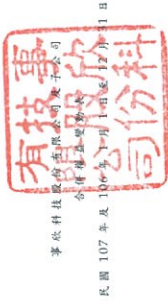 事欣科技股份有限公司及子公司
合併權益變動表
民國 107 年及 106 年 1 月 1 日至 12 月 31 日
事欣科
技股份
有限公司